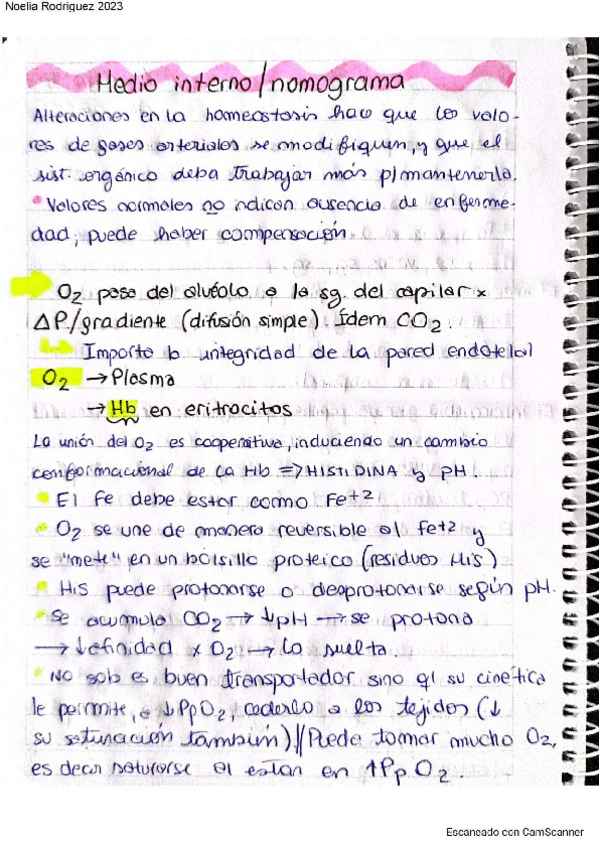 Noelia Rodriguez 2023
Medio interno/nomograma
Alteraciones en la homeostasis hace que los valo-
res de gases arteriales se modifiquen, y que el
sist. orgánico deba trabajar más p/mantenerla.
Valores normales no indican ausencia de enferme-
dad, puede haber compensación.
O2 pasa del alvéolo a la sg. del capilar x
ΔP/gradiente (difusión simple). Ídem CO2.
Importa la integridad de la pared endotelial
O2 → Plasma
→ Hb en eritrocitos
La unión del O2 es cooperativa, induciendo un cambio
conformacional de la Hb => HISTIDINA y PH.
El Fe debe estar como Fe+2.
O2 se une de manera reversible al Fe+2 y
se "mete" en un bolsillo proteico (residuos His)
His puede protonarse o desprotonarse según pH.
Se acumula CO2 → ↓pH → se protona
→ ↓afinidad x O2 → lo suelta.
No solo es buen transportador sino ql su cinética
le permite, a ↓PpO2, cederlo a los tejidos (↓
su saturación también)//Puede tomar mucho O2,
es decir saturarse al estar en ↑PpO2.
Escaneado con CamScanner